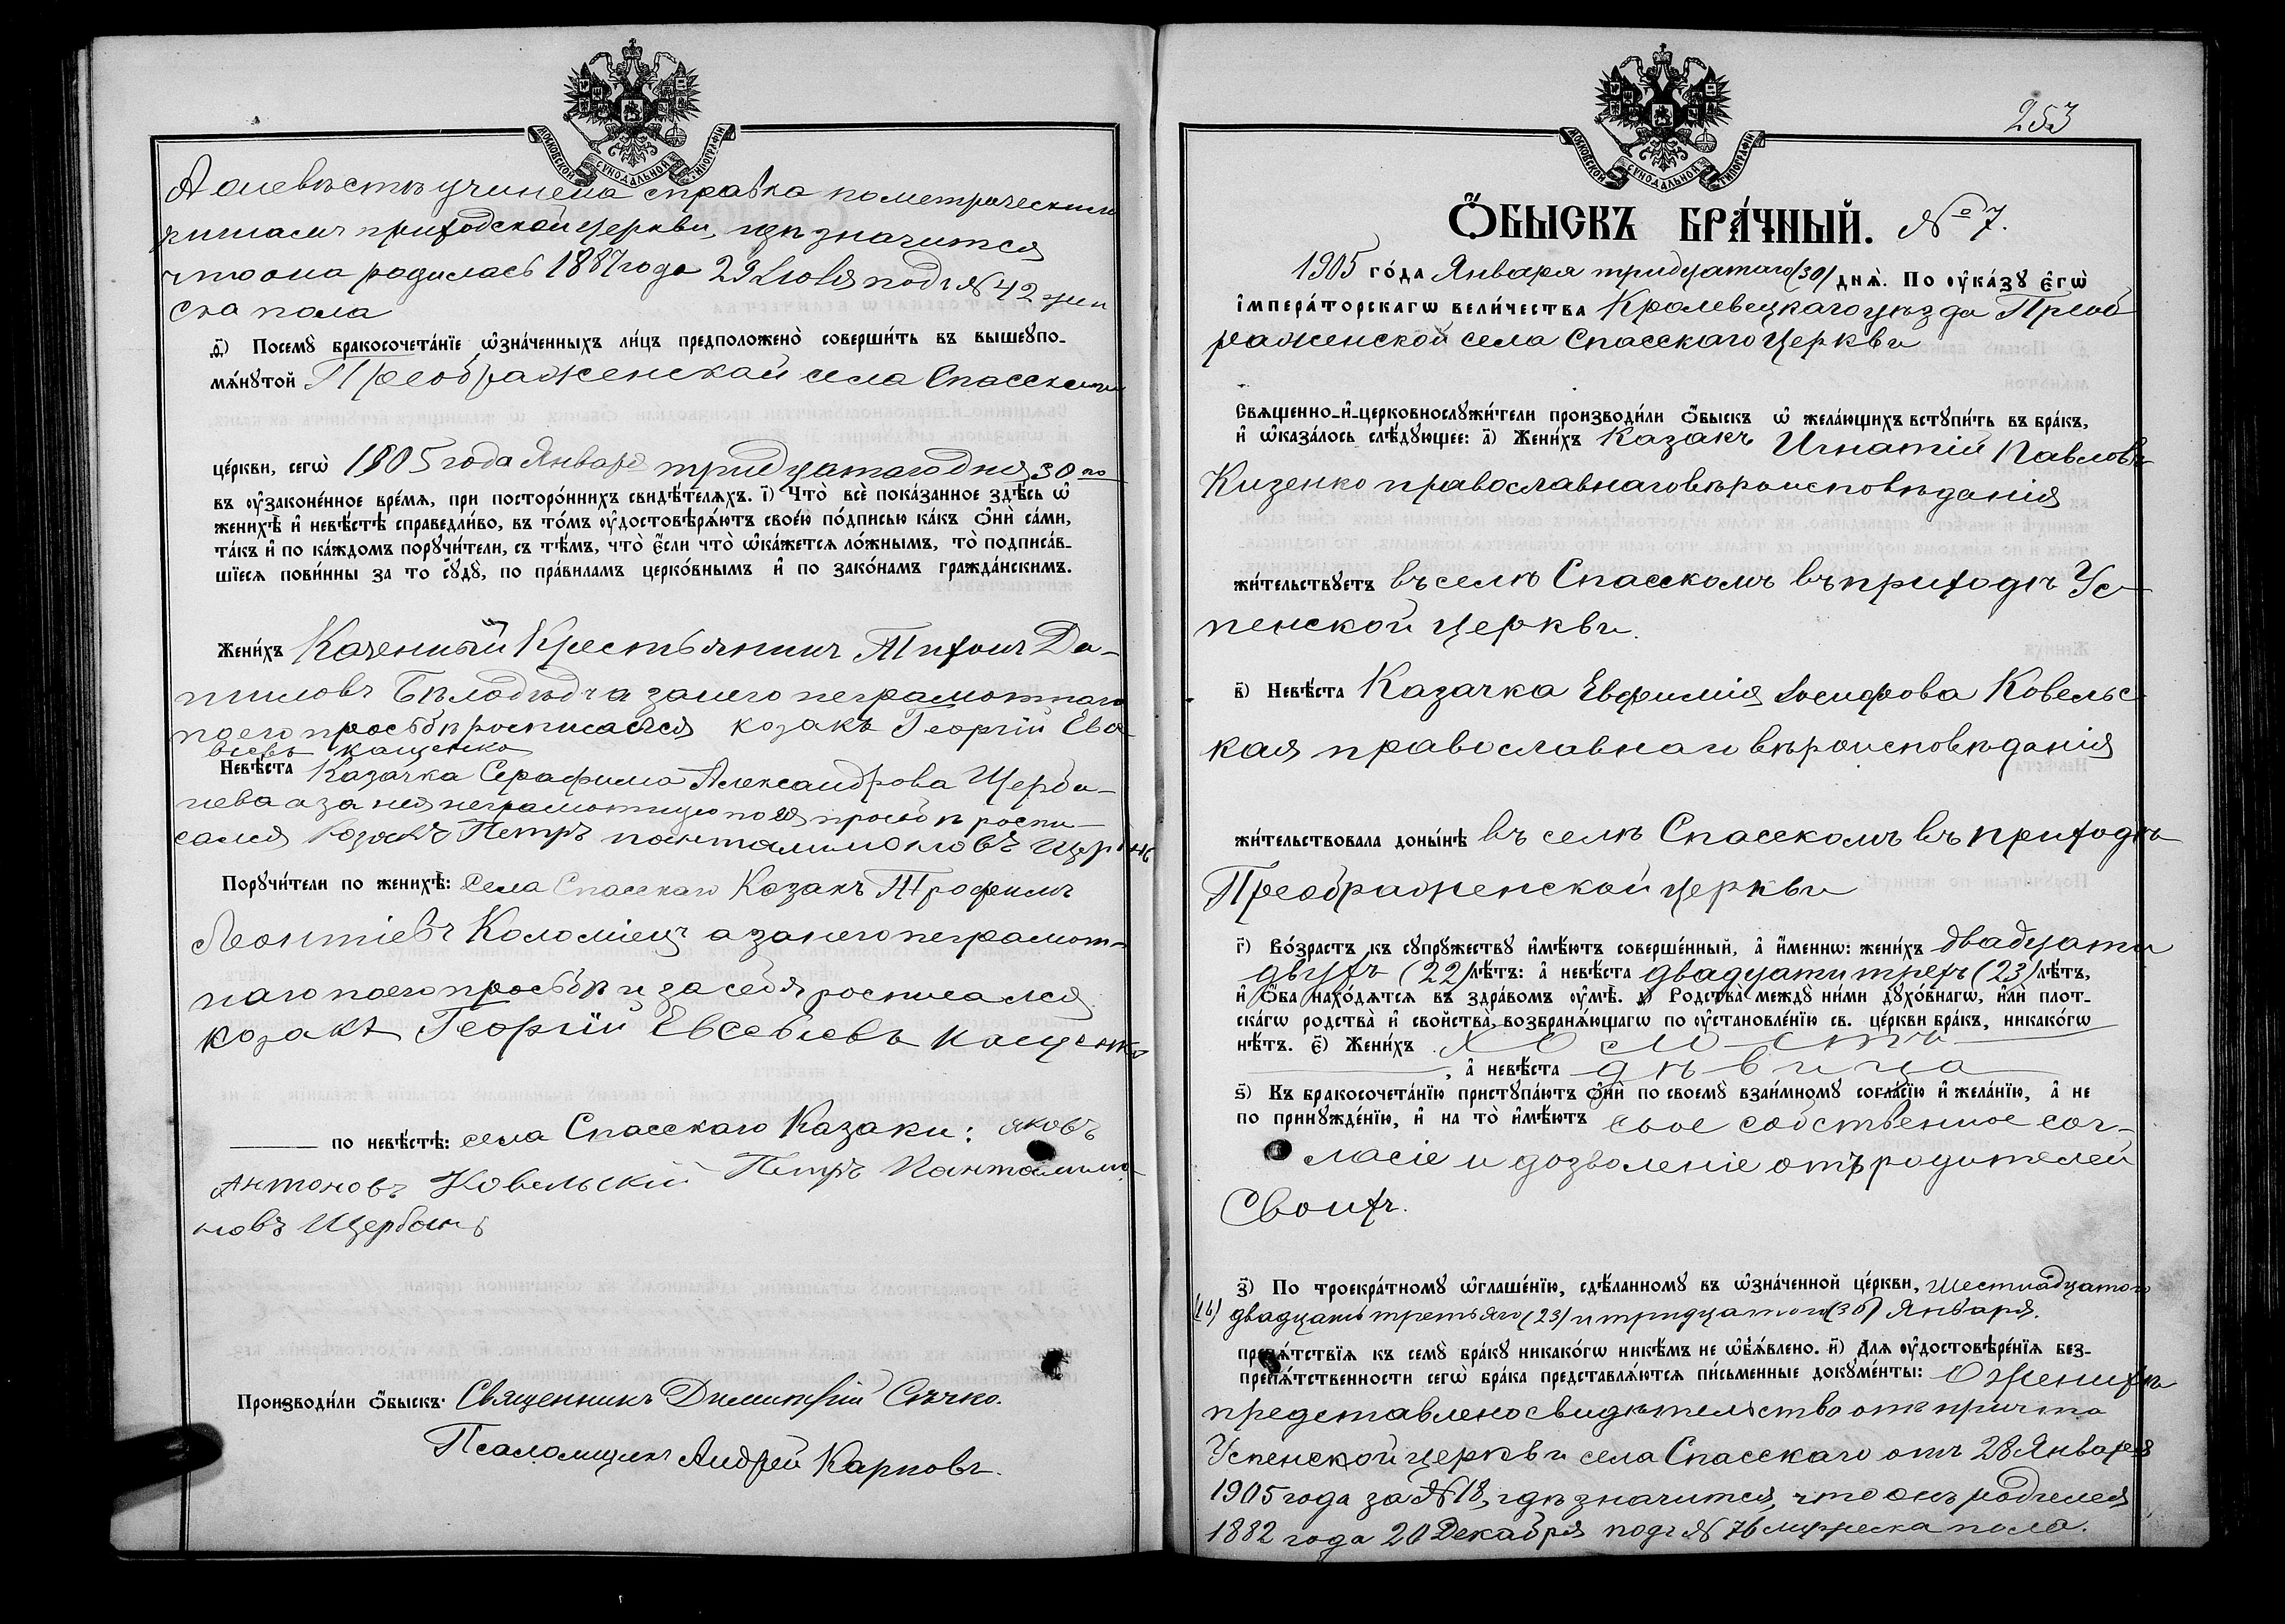 МОСКОВСКОЙ СУНОДАЛЬНОЙ ТИПОГРАФІИ
А о невѣстѣ учинена справка по метрическимъ
книгамъ приходской церкви, гдѣ значится
что она родилась 1887 года 29 Іюля подъ № 42 жен
ска пола
д҃і) Посемꙋ̀ бракосочета́нїе ѡ҆зна́ченныхъ ли́цъ предположено̀ соверши́ть въ вышеꙋпо-
мѧ́нꙋтой Преображенской села Спасскаго
це́ркви, сегѡ̀ 1905 года Января тридцатаго дня 30 го
въ ᲂу҆законе́нное вре́мѧ, при посторо́ннихъ свидѣ́телѧхъ. і҃) Что̀ всѐ пока́занное здѣ́сь ѡ҆
женихѣ̀ и҆ невѣ́стѣ справедли́во, въ то́мъ ᲂу҆достовѣрѧ́ютъ свое́ю по́дписью ка́къ ѻ҆нѝ са́ми,
та́къ и҆ по ка́ждомъ порꙋчи́тели, съ тѣ́мъ, что̀ є҆́сли что̀ ѡ҆ка́жетсѧ ло́жнымъ, то̀ подписа́в-
шїесѧ пови́нны за то сꙋдꙋ̀, по пра́виламъ церко́внымъ и҆ по зако́намъ гражда́нскимъ.
Жени́хъ Казенный Крестьянинъ Тихонъ Да-
ниловъ Бѣлодѣдъ а за него неграмотнаго
по его просьбѣ росписался козакъ Георгій Евсе
віевъ Кащенко
Невѣ́ста Казачка Серафима Александрова Щерба-
нева а за нея неграмотную по ея просьбѣ роспи-
сался козакъ Петръ Понталимоновъ Щербань
Порꙋчи́тели по женихѣ̀: Села Спасскаго Козакъ Трофимъ
Леонтіевъ Коломіецъ а за него неграмот-
наго по его просьбѣ и за себя росписался
козакъ Георгій Евсевіевъ Кащенко
по невѣ́стѣ: села Спасскаго Казаки: Яковъ
Антоновъ Ковельскій Петръ Понталимо-
новъ Щербань
Производи́ли ѻ҆́быскъ: Священникъ Димитрій Сѣчко.
Псаломщикъ Андрей Карповъ.
253
МОСКОВСКОЙ СУНОДАЛЬНОЙ ТИПОГРАФІИ
Ѻ҆́БЫСКЪ БРА́ЧНЫЙ. № 7.
1905 го́да Января тридцатаго (30) днѧ̀. По ᲂу҆ка́зꙋ є҆гѡ̀
і҆мпера́торскагѡ вели́чества Кролевецкаго уѣзда Преоб
раженской села Спасскаго Церкви
Свѧщенно-и҆-церковнослꙋжи́тели производи́ли ѻ҆́быскъ ѡ҆ жела́ющихъ встꙋпи́ть въ бра́къ,
и҆ ѡ҆каза́лось слѣ́дꙋющее: а҃) Жени́хъ Казакъ Игнатій Павловъ
Кизенко православнаго вѣроисповѣданія
жи́тельствꙋетъ въ селѣ Спасскомъ въ приходѣ Ус-
пенской церкви.
в҃) Невѣ́ста Казачка Евфимія Іосифова Ковельс-
кая православнаго вѣроисповѣданія
жи́тельствовала доны́нѣ въ селѣ Спасскомъ въ приходѣ
Преображенской церкви
г҃) Во́зрастъ къ сꙋпрꙋ́жествꙋ и҆мѣ́ютъ соверше́нный, а҆ и҆́меннѡ: жени́хъ двадцати
двухъ (22) лѣ́тъ: а҆ невѣ́ста двадцати трехъ (23) лѣ́тъ,
и҆ ѻ҆́ба нахо́дѧтсѧ въ здра́вомъ ᲂу҆мѣ̀. д҃) Родства̀ междꙋ̀ ни́ми дꙋхо́внагѡ, и҆лѝ плот-
ска́гѡ родства̀ и҆ сво́йства̀, возбранѧ́ющагѡ по ᲂу҆становле́нїю св. це́ркви бра́къ, никако́гѡ
нѣ́тъ. є҃) Жени́хъ холостъ
, а҆ невѣ́ста дѣвица
ѕ҃) Къ бракосочета́нїю пристꙋпа́ютъ ѻ҆нѝ по своемꙋ̀ взаи́мномꙋ согла́сїю и҆ жела́нїю, а҆ не
по принꙋжде́нїю, и҆ на то̀ и҆мѣ́ютъ свое собственное сог-
ласіе и дозволеніе отъ родителей
Своихъ.
з҃) По троекра́тномꙋ ѡ҆глаше́нїю, сдѣ́ланномꙋ въ ѡ҆зна́ченной це́ркви, Шестнадцатого
(16) двадцать третьяго (23) и тридцатого (30) Января.
препѧ́тствїѧ къ семꙋ̀ бра́кꙋ никако́гѡ никѣ́мъ не ѡ҆б̾ѧ́влено. и҃) Длѧ ᲂу҆достовѣре́нїѧ без-
препѧ́тственности сегѡ̀ бра́ка представлѧ́ютсѧ пи́сьменные докꙋме́нты: О женихѣ
представлено свидѣтельство отъ причта
Успенской церкви села Спасскаго отъ 28 Января
1905 года за № 18, гдѣ значится, что онъ родился
1882 года 20 Декабря подъ № 76 мужеска пола.